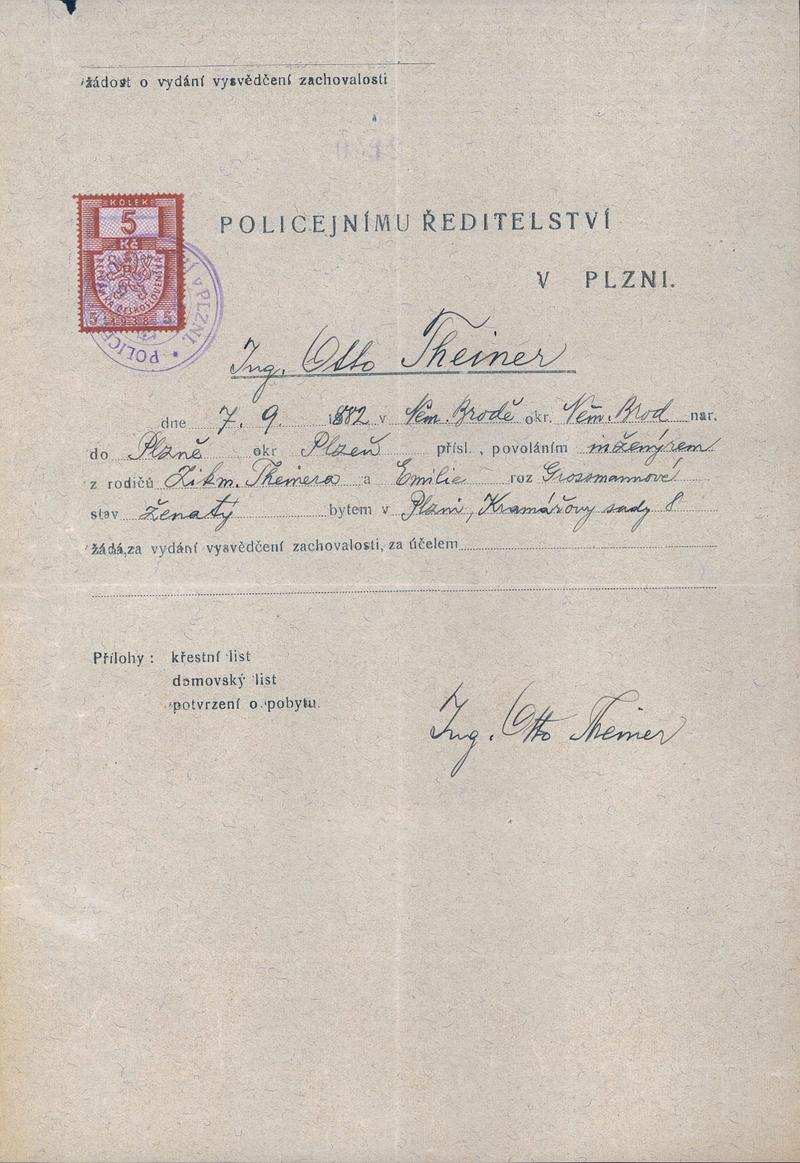 žádost o vydání vysvědčení zachovalosti
KOLEK
5
Kč
REPUBLIKA ČESKOSLOVENSKÁ
5 1938 5
POLICEJNÍMU ŘEDITELSTVÍ
V PLZNI.
Ing. Otto Theiner
dne 7. 9. 1882 v Něm. Brodě okr. Něm. Brod nar.
do Plzně okr Plzeň přísl., povoláním inženýrem
z rodičů Zikm. Theinera a Emilie roz Grossmannové
stav ženatý bytem v Plzni, Kramářovy sady 8
žádá,za vydání vysvědčení zachovalosti, za účelem
Přílohy : křestní list
domovský list
potvrzení o pobytu.
Ing. Otto Theiner